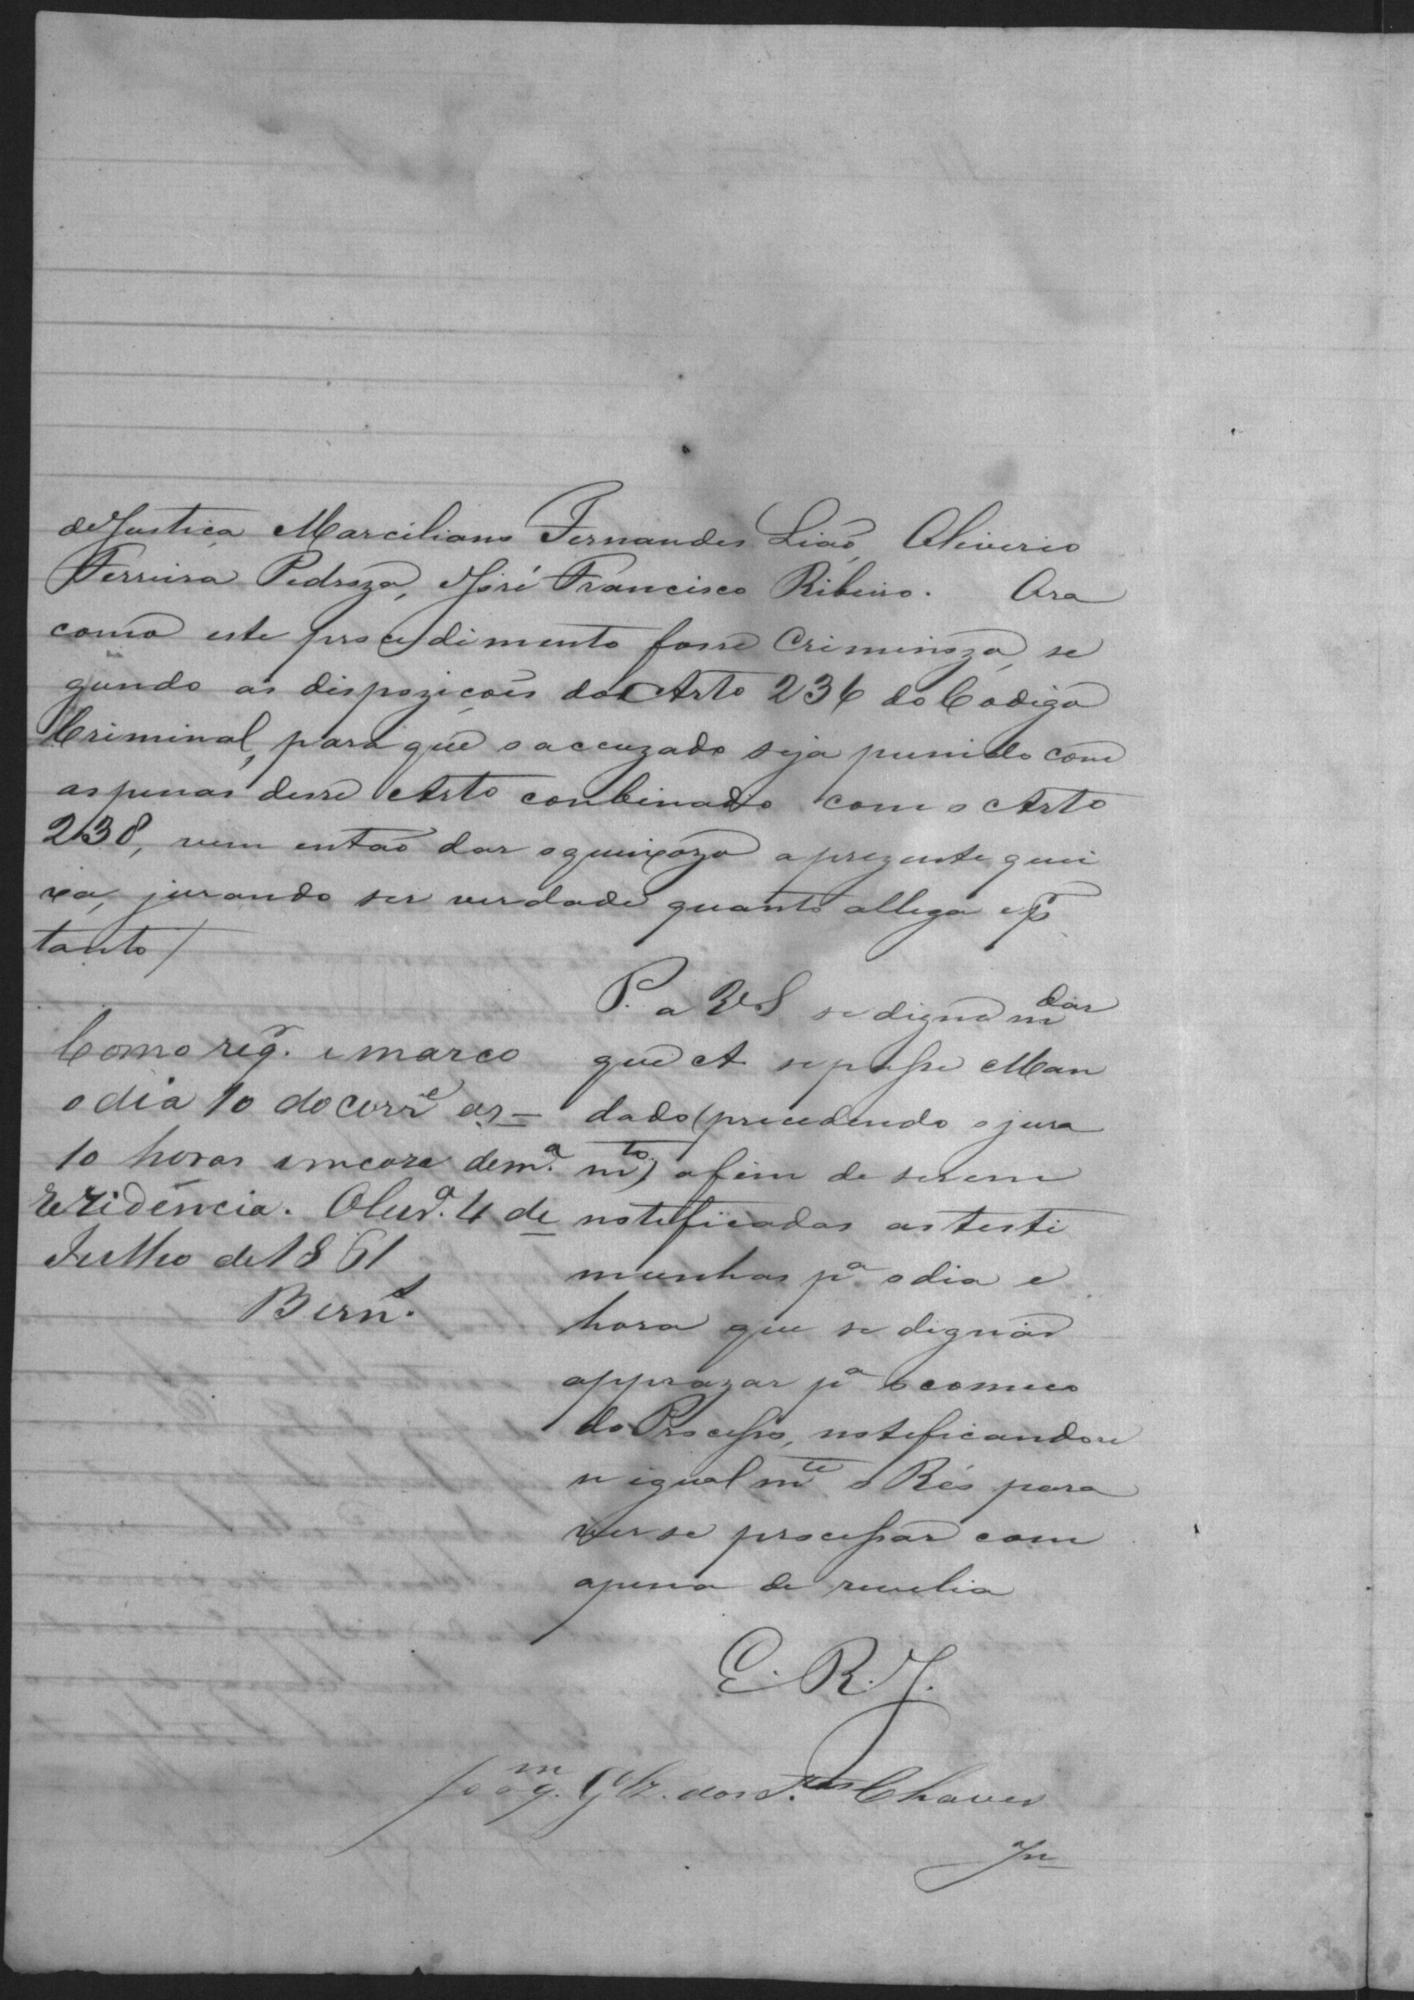 de Justiça Marciliano Fernandes Lião, Oliverio
Ferreira Pedroza, José Francisco Ribeiro. Ora
como este procedimento fosse Criminozo, se
gundo as dispozições do Arto 236 do Codigo
Criminal, para que o accuzado seja punido com
as penas desse Arto conbinado com o Arto
238, vem então dar o queixozo a prezente quei
xa, jurando ser verdade quanto allega e p
tanto/
P. a V S se digne mdar
que A se passe Man
dado (precedendo o jura
mto) afim de serem
notificadas as testi
munhas pa o dia e
hora que se dignar
apprazar pa o comeco
do Processo, notificando se
igualmte o Réo para
ver se processar com
apena de revelia
E. R. J.
Joaqm. Glz. dos Chaves
Jr
Como reqr. e marco
o dia 10 do corre as
10 horas em caza de ma.
rezidencia. 4 de
Julho de 1861
Berns.